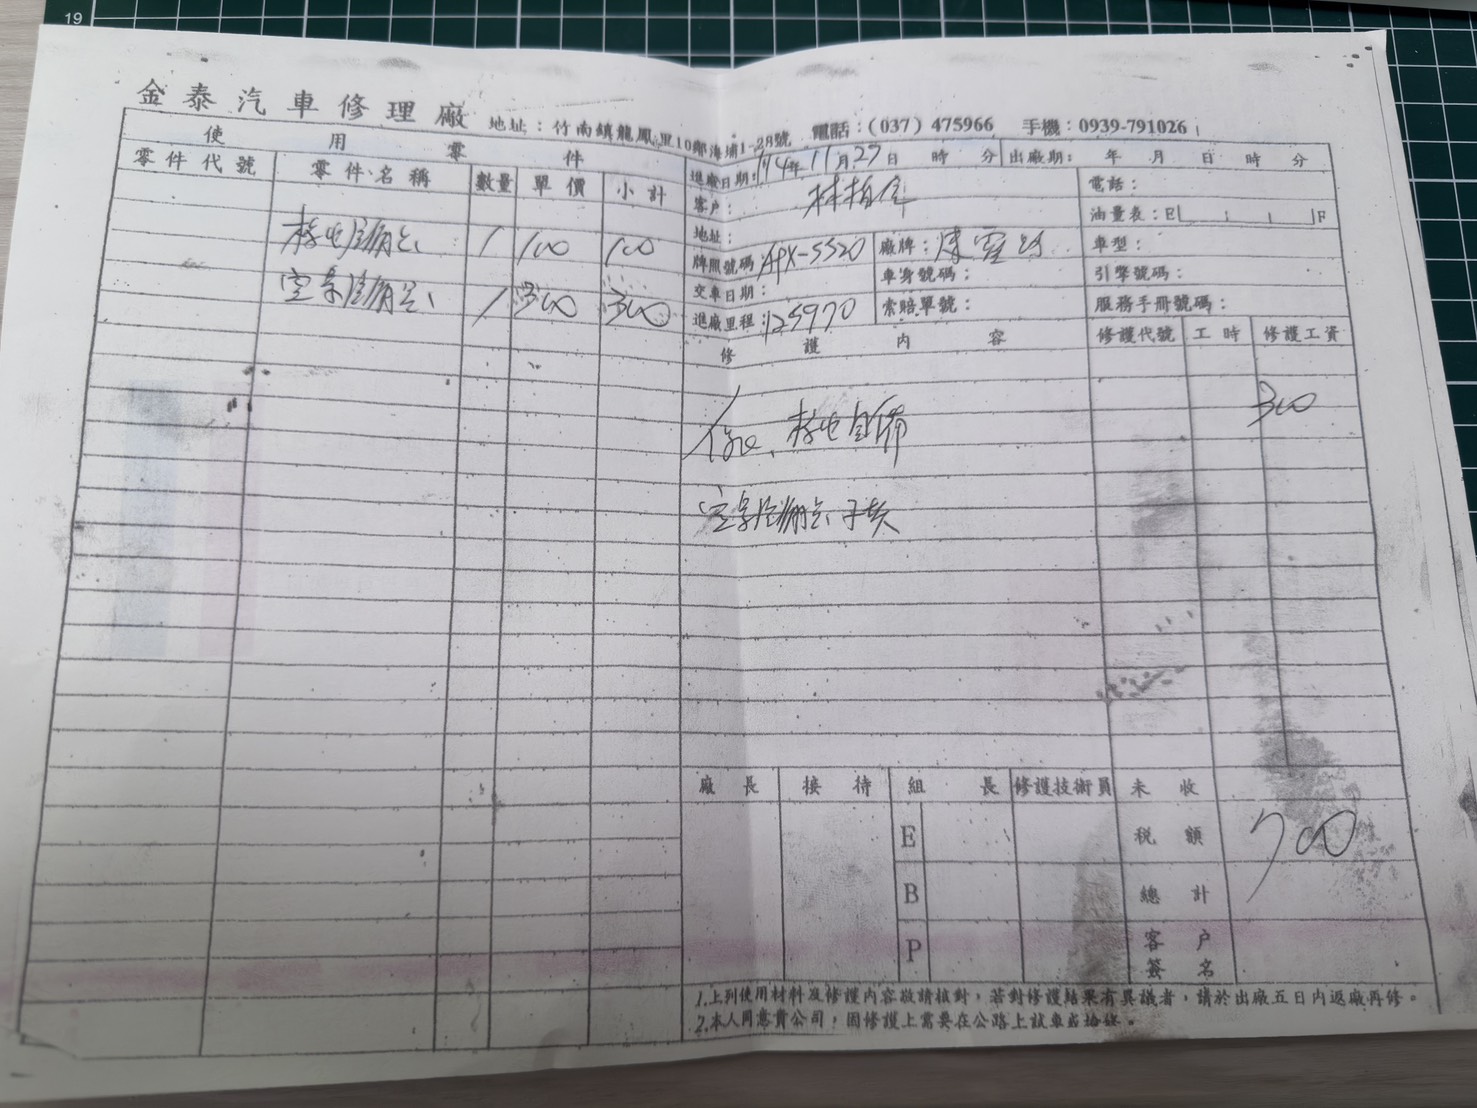 19
金泰汽車修理廠 地址：竹南鎮龍鳳里10鄰海埔1-28號 電話：(037) 475966 手機：0939-791026
使用零件
零件代號 零件名稱 數量 單價 小計
1 100 100
1 300 300
進廠日期：114年11月27日 時 分 出廠期： 年 月 日 時 分
客戶： 林柏 電話：
地址： 油量表：E F
牌照號碼：APX-5520 廠牌： 車型：
交車日期： 車身號碼： 引擎號碼：
進廠里程：125970 索賠單號： 服務手冊號碼：
修護內容 修護代號 工時 修護工資
300
廠長 接待 組長 修護技術員 未收
E 稅額 700
B 總計
P 客戶簽名
1.上列使用材料及修護內容敬請核對，若對修護結果有異議者，請於出廠五日內返廠再修。
2.本人同意貴公司，因修護上需要在公路上試車或拾修。